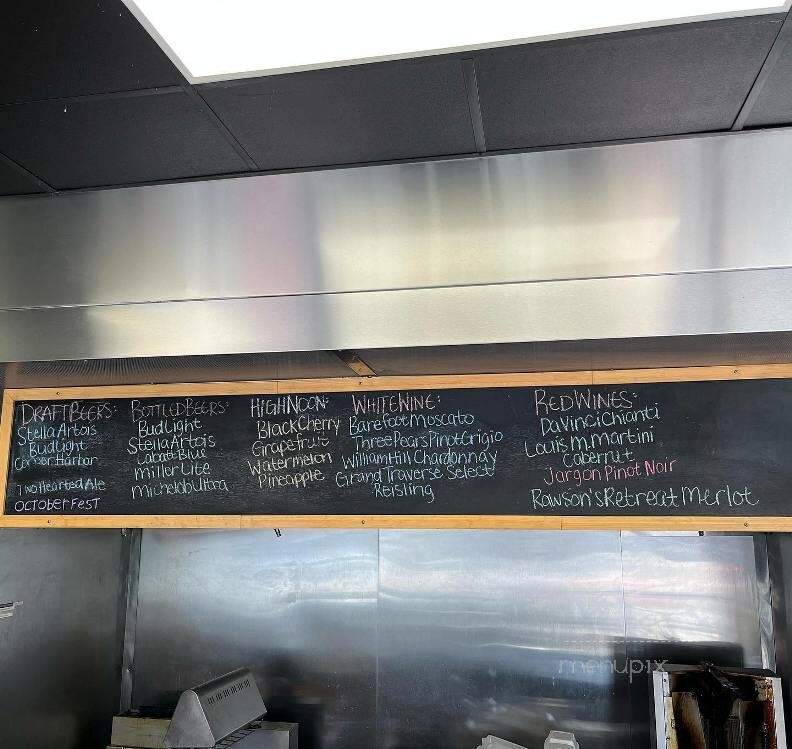 DRAFT BEERS:
Stella Artois
Bud Light
Harbor
Two Hearted Ale
OCTOBERFEST
BOTTLED BEERS:
BudLight
Stella Artois
Labatt Blue
Miller Lite
Michelob Ultra
HIGH NOON:
Black Cherry
Grapefruit
Watermelon
Pineapple
WHITE WINE:
Barefoot Moscato
Three Pears Pinot Grigio
William Hill Chardonnay
Grand Traverse Select
Reisling
RED WINES:
DaVinci Chianti
Louis M. Martini
Cabernut
Jargon Pinot Noir
Rawson's Retreat Merlot
menupix